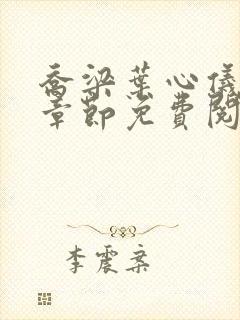 乔梁叶心仪
章节免费阅
李震案